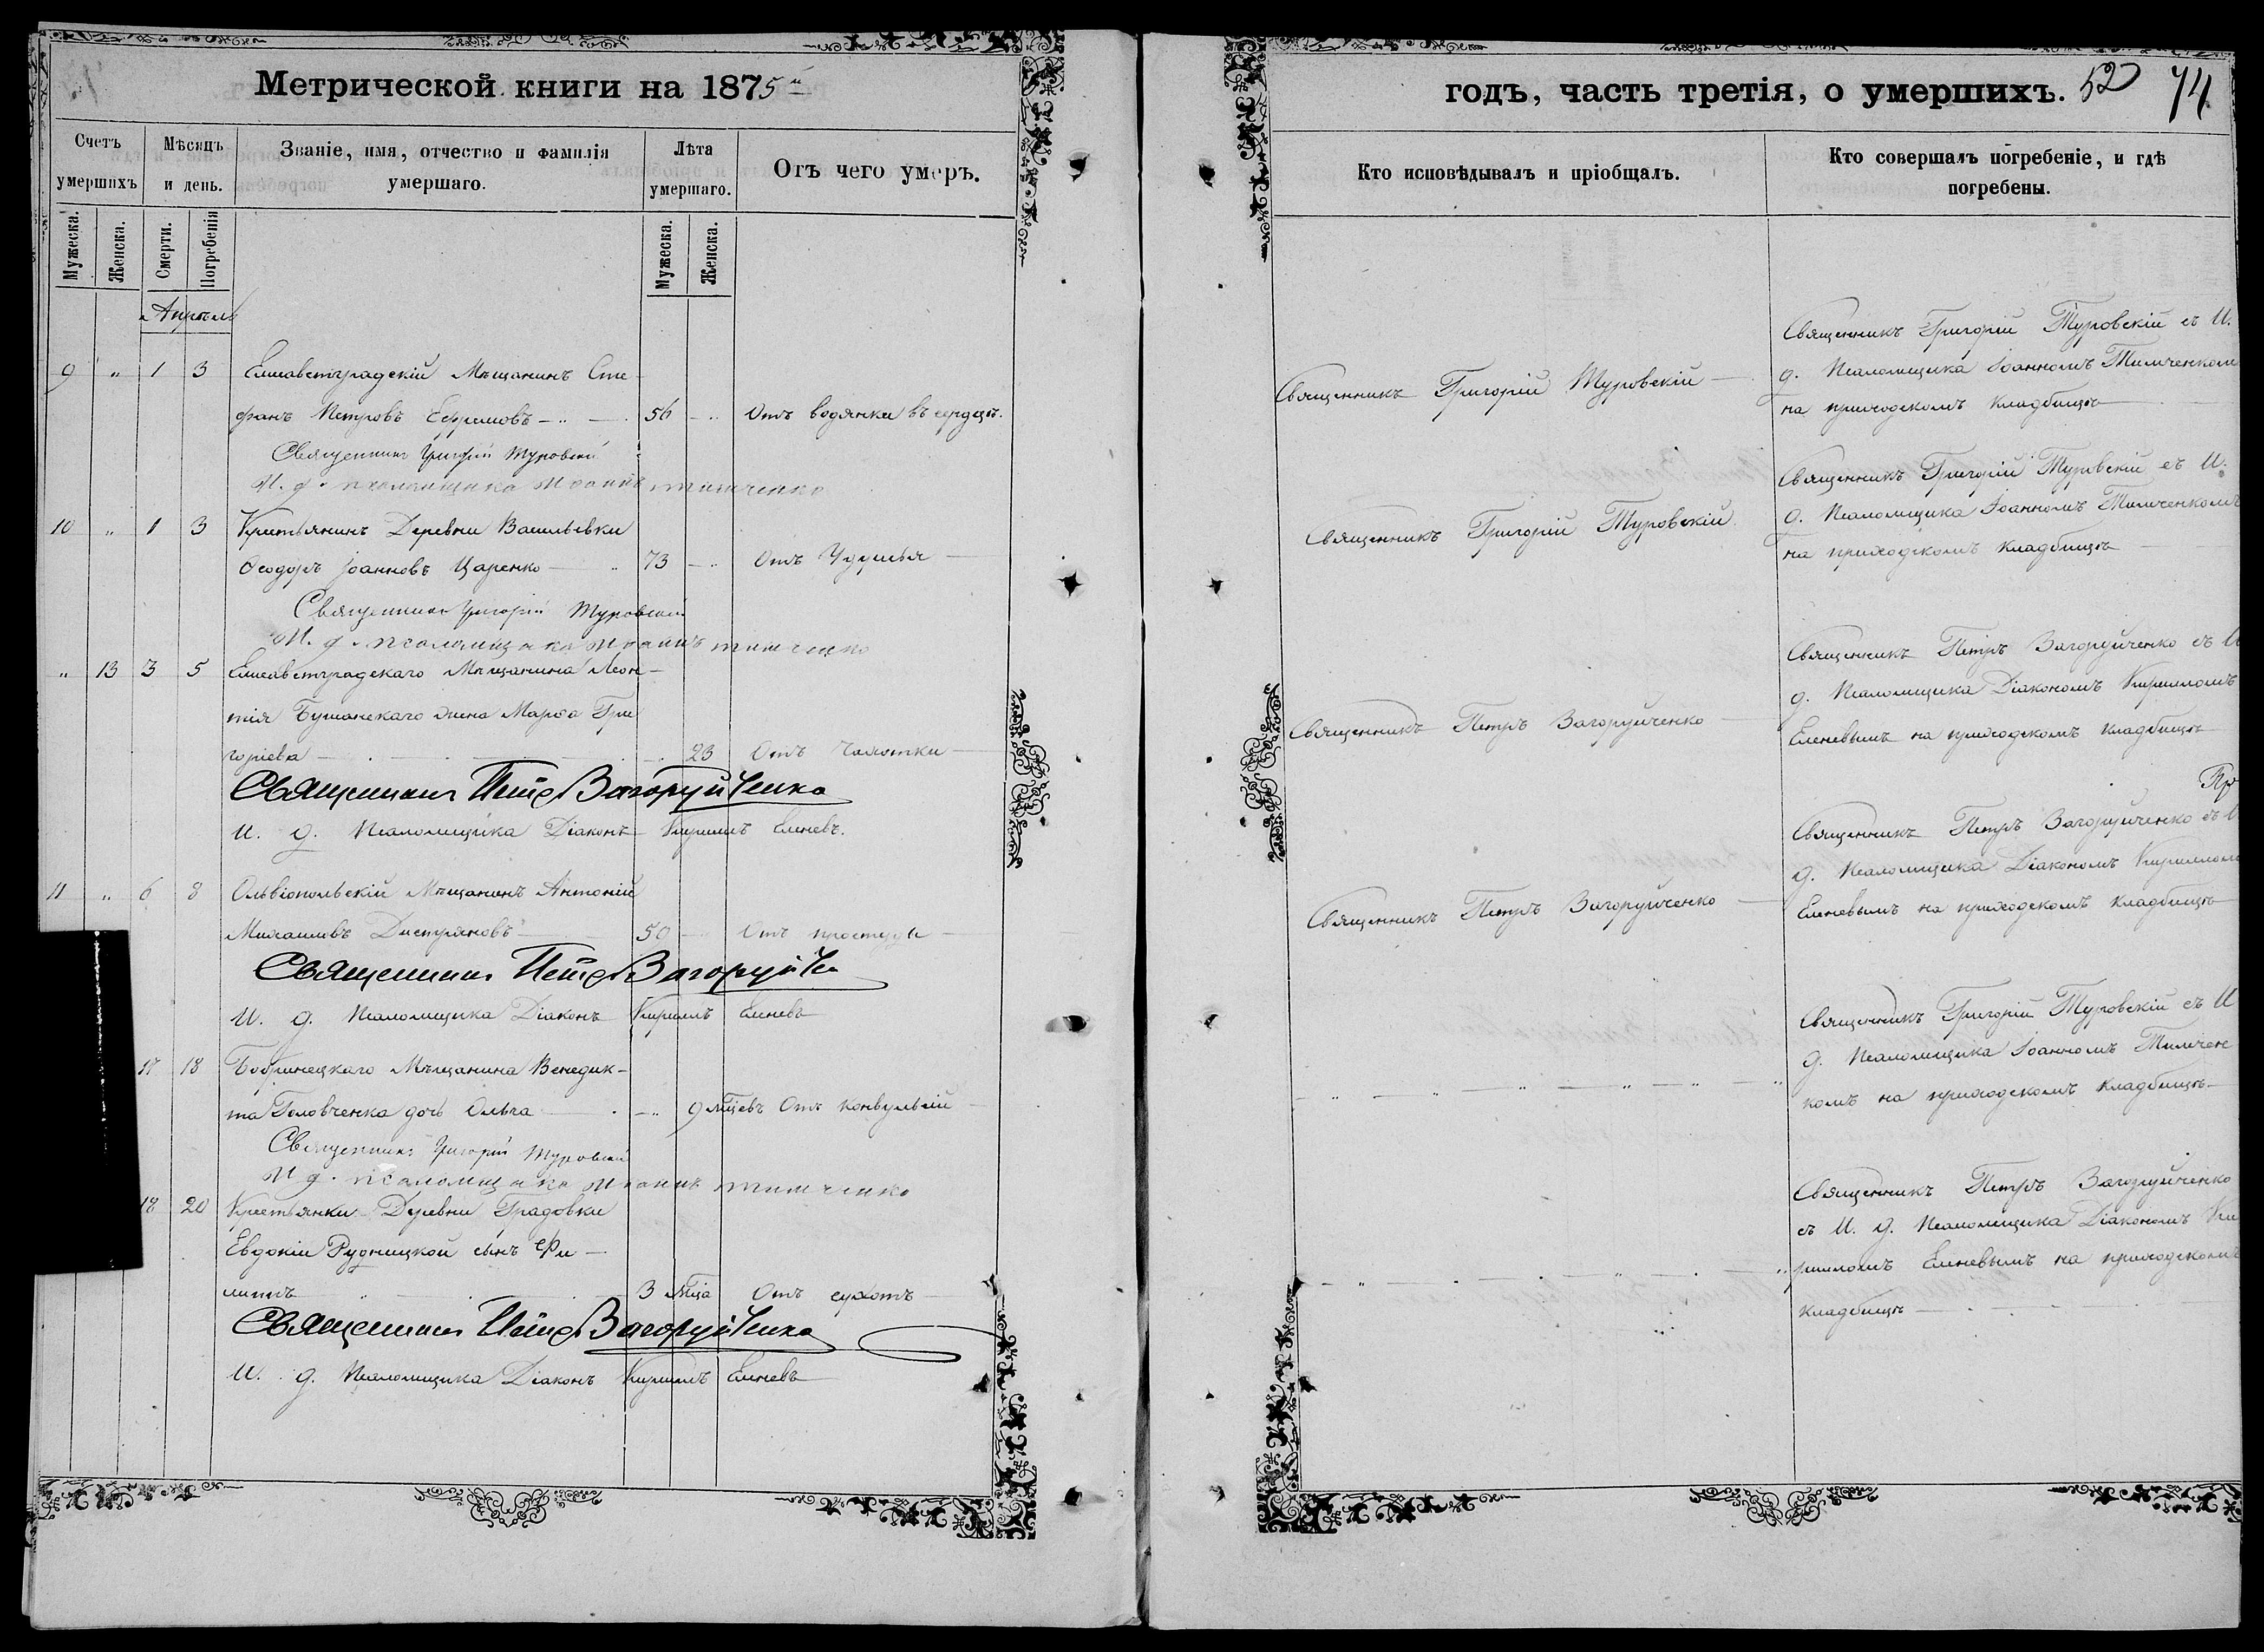 Метрической книги на 1875й
Счетъ умершихъ
Мѣсяцъ и день.
Званіе, имя, отчество и фамилія умершаго.
Лѣта умершаго.
Отъ чего умеръ.
Мужеска.
Женска.
Смерти.
Погребенія
Мужеска.
Женска.
Апрѣль
9 " 1 3 Елисаветградскій Мѣщанинъ Сте-
фанъ Петровъ Ефремовъ 56 " Отъ водянки въ сердцѣ.
Священникъ Григорій Туровскій
И. д. псаломщика Иоаннъ Тимченко
10 " 1 3 Крестьянинъ Деревни Васильевки
Ѳеодоръ Іоанновъ Царенко 73 " Отъ Удушья
Священникъ Григорій Туровскій
И. д. псаломщика Иоаннъ Тимченко
" 13 3 5 Елисаветградскаго Мѣщанина Леон-
тія Бушанскаго жена Марѳа Гри
горіева 23 Отъ Чахотки
Священникъ Петръ Загоруйченко
И. д. Псаломщика Діаконъ Кириллъ Еленевъ.
11 " 6 8 Ольвіопольскій Мѣщанинъ Антоній
Михаиловъ 50 Отъ простуды
Священникъ Петръ Загоруйче
И. д. Псаломщика Діаконъ Кириллъ Еленевъ
17 18 Бобринецкаго Мѣщанина Венедик-
та Головченка дочь Ольга " 9 мѣцевъ Отъ конвульсій
Священникъ Григорій Туровскій
И д. псаломщика Иоаннъ Тимченко
18 20 Крестьянки Деревни Градовки
Евдокіи Рудницкой сынъ Фи-
липпъ 3 мѣца Отъ сухотъ
Священникъ Петръ Загоруйченко
И. д. Псаломщика Діаконъ Кириллъ Еленевъ
годъ, часть третія, о умершихъ. 52 74
Кто исповѣдывалъ и пріобщалъ.
Кто совершалъ погребеніе, и гдѣ погребены.
Священникъ Григорій Туровскій
Священникъ Григорій Туровскій съ И.
д. Псаломщика Іоанномъ Тимченком
на приходскомъ кладбищѣ
Священникъ Григорій Туровскій
Священникъ Григорій Туровскій съ И.
д. Псаломщика Іоанномъ Тимченкомъ
на приходскомъ кладбищѣ
Священникъ Петръ Загоруйченко
Священникъ Петръ Загоруйченко съ И
д. Псаломщика Діакономъ Кирилломъ
Еленевымъ на приходскомъ кладбищѣ
Пр
Священникъ Петръ Загоруйченко
Священникъ Петръ Загоруйченко съ И
д. Псаломщика Діакономъ Кириллом
Еленевымъ на приходскомъ кладбищѣ
Священникъ Григорій Туровскій съ И
д. Псаломщика Іоанномъ Тимчен
комъ на приходскомъ кладбищѣ
Священникъ Петръ Загоруйченко
съ И. д. Псаломщика Діакономъ Ки
рилломъ Еленевымъ на приходскомъ
кладбищѣ